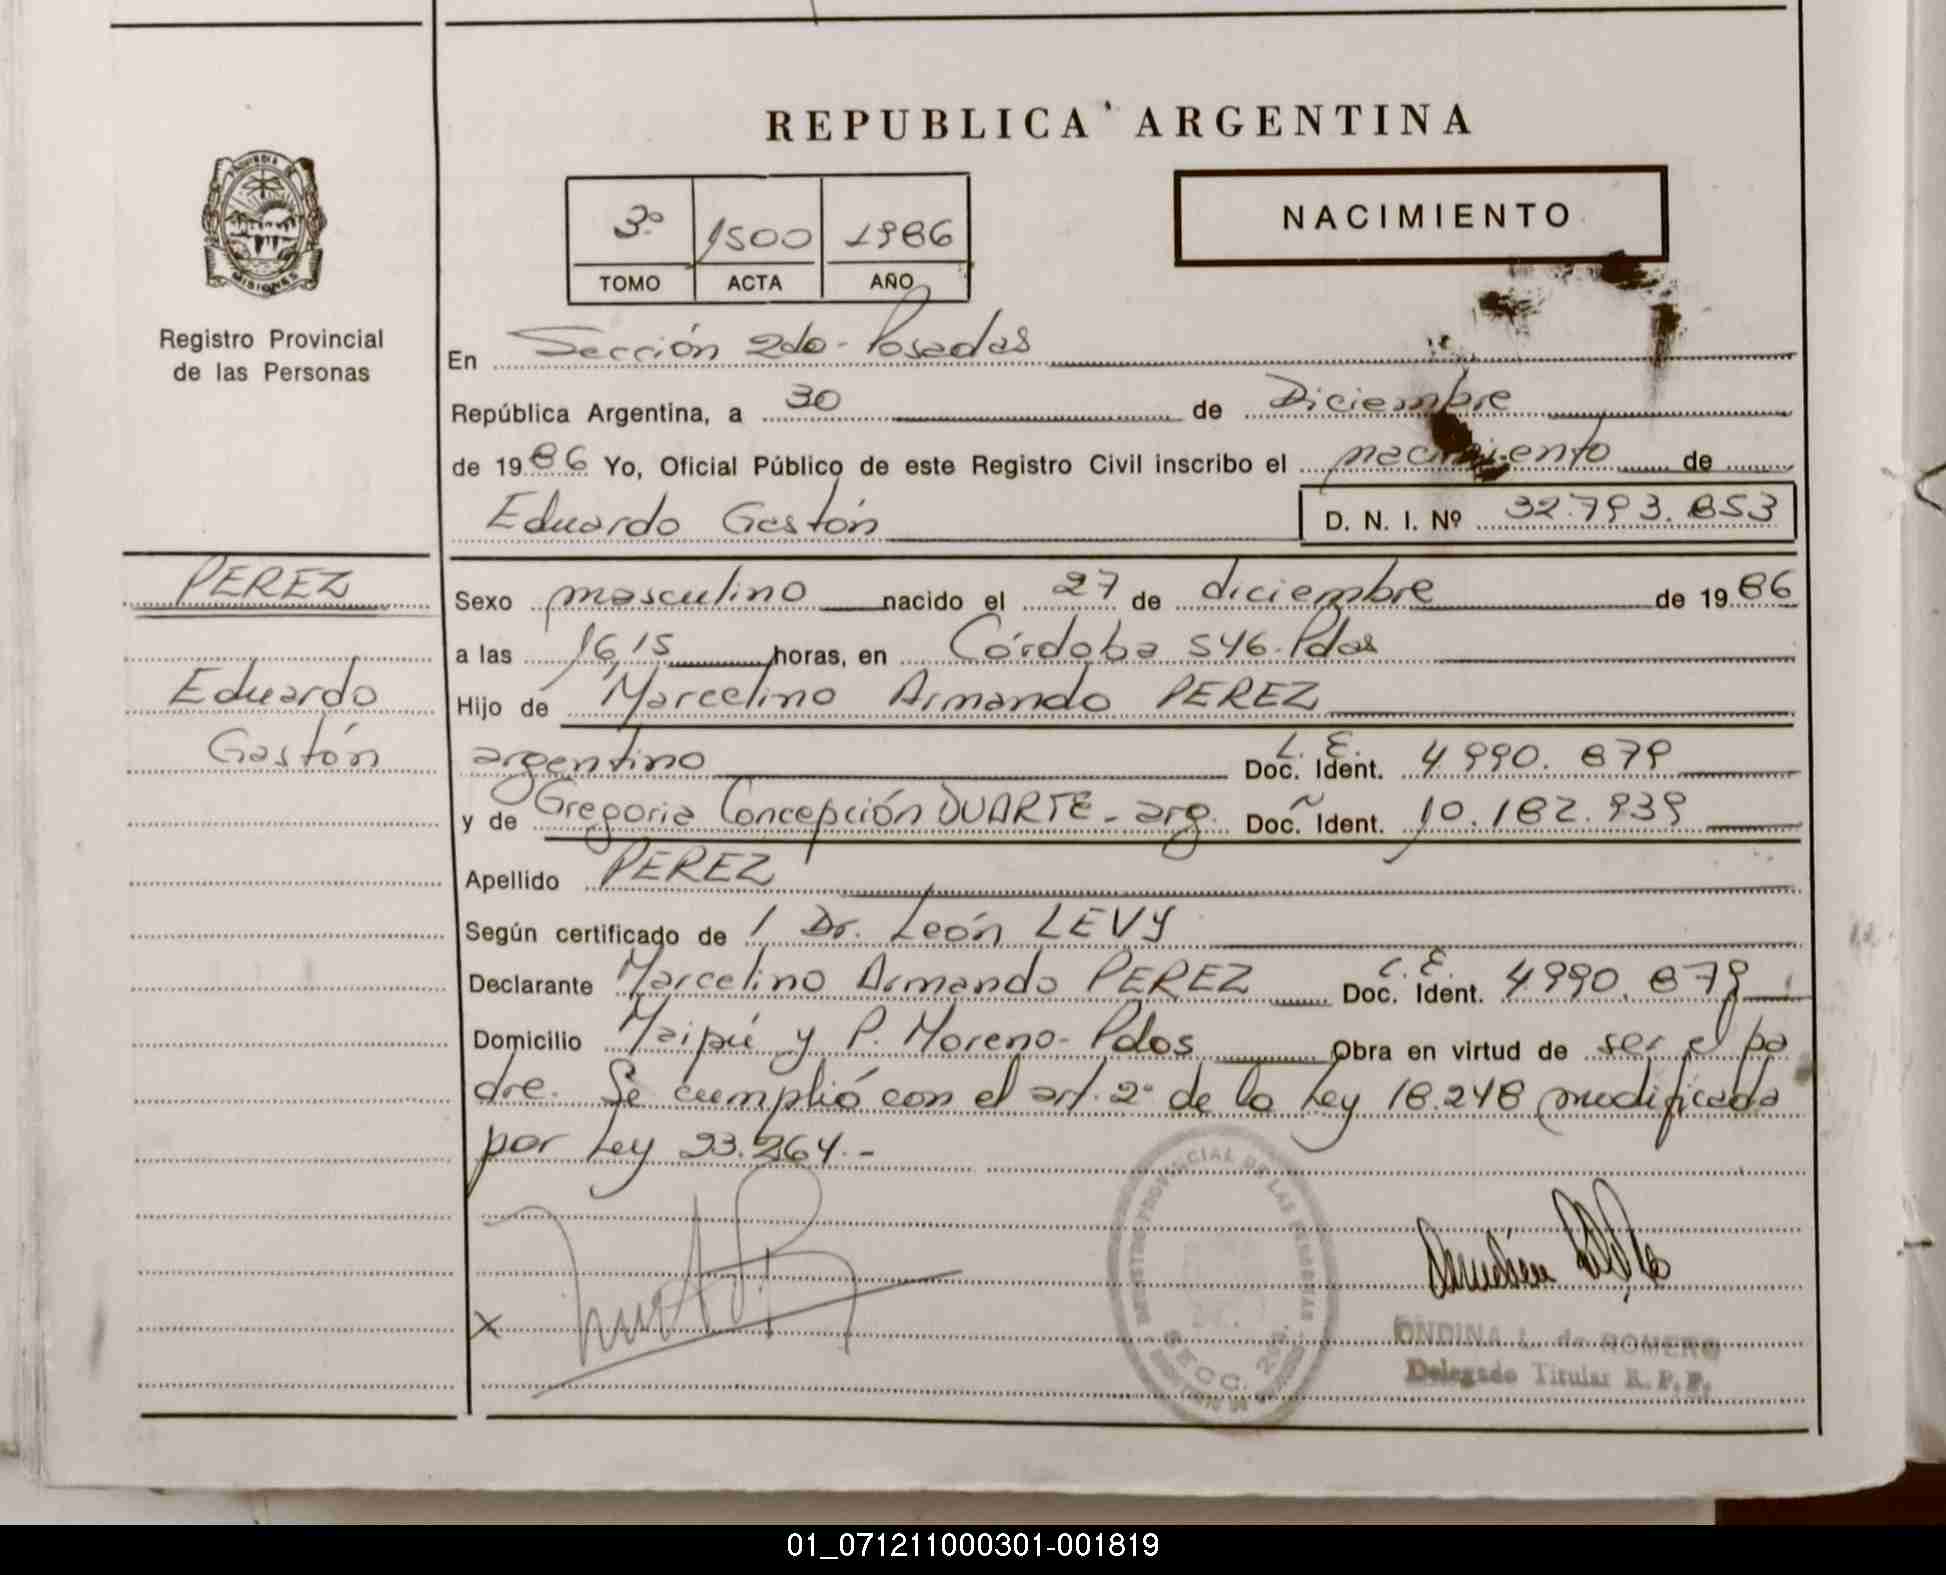 REPUBLICA ARGENTINA
NACIMIENTO
3º 1500 1986
TOMO ACTA AÑO
Registro Provincial
de las Personas
MISIONES
En Sección 2da - Posadas
República Argentina, a 30 de Diciembre
de 1986 Yo, Oficial Público de este Registro Civil inscribo el nacimiento de
Eduardo Gastón D. N. I. Nº 32.793.853
PEREZ
Eduardo
Gastón
Sexo masculino nacido el 27 de diciembre de 1986
a las 16,15 horas, en Córdoba 546 - Pdas
Hijo de Marcelino Armando PEREZ
argentino L. E. Doc. Ident. 4.990.879
y de Gregoria Concepción DUARTE - arg. Doc. Ident. 10.182.939
Apellido PEREZ
Según certificado de / Dr. León LEVY
Declarante Marcelino Armando PEREZ L. E. Doc. Ident. 4990.879
Domicilio Maipú y P. Moreno - Pdas Obra en virtud de ser el pa
dre. Se cumplió con el art. 2º de la Ley 18.248 modificada
por Ley 23.264.-
REGISTRO PROVINCIAL DE LAS PERSONAS
SECC. 2da.
X
ONDINA L. de ROMERO
Delegado Titular R. P. P.
01_071211000301-001819